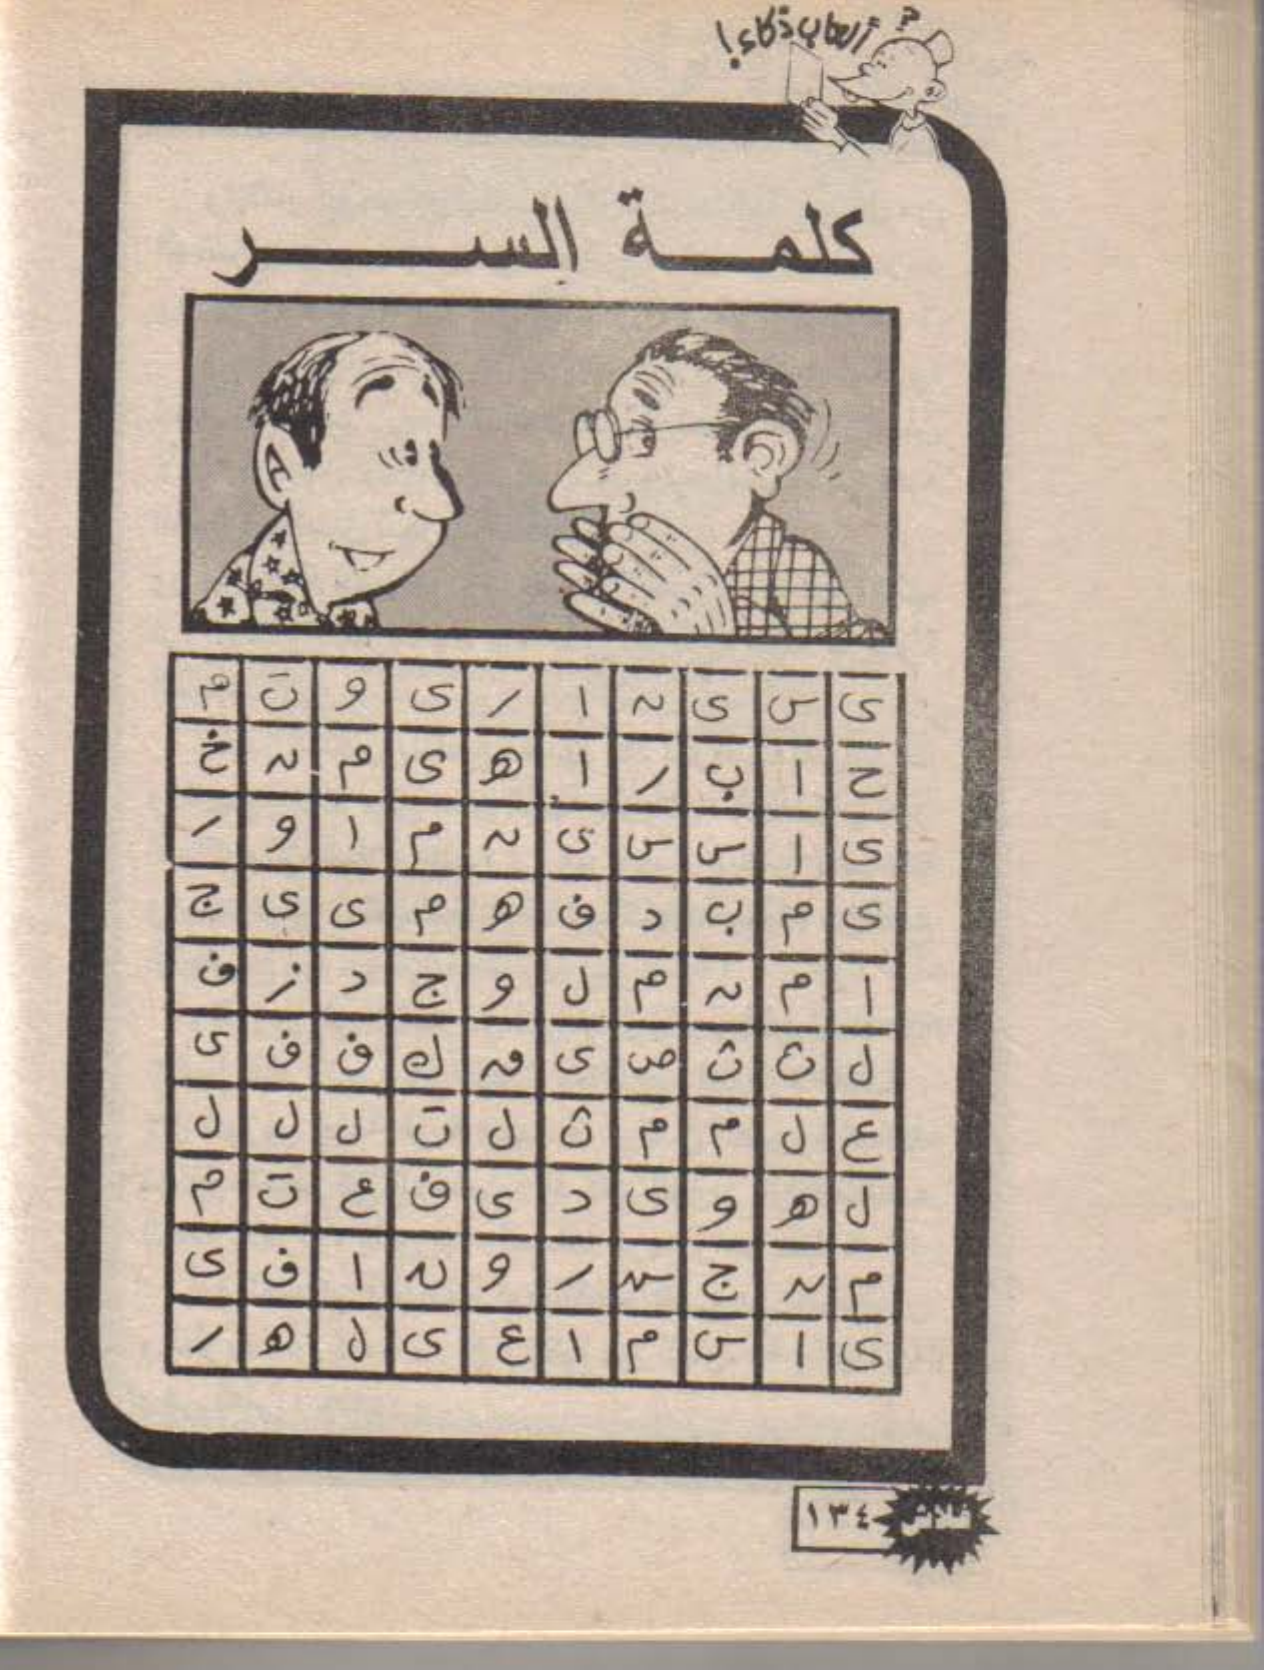 ألعاب ذكاء!
كلمة السر
ى س ى ن ا ر ى و ت م
ح ا ب ر ا ه ى م ن خ
ى ا س س ى ن م ا و ر
ى م ب د ق ه م ى ى ج
ا م ن م ل و ج د ز ف
ل ث ث ص ى ق ك ف ف ى
ع ل م م ث ل ت ل ل ل
ل ه و ى د ى ف ع ت م
م ن ج س ر و ن ا ف ى
ى ا س م ا ع ى ل ه ر
١٣٤
فلاش